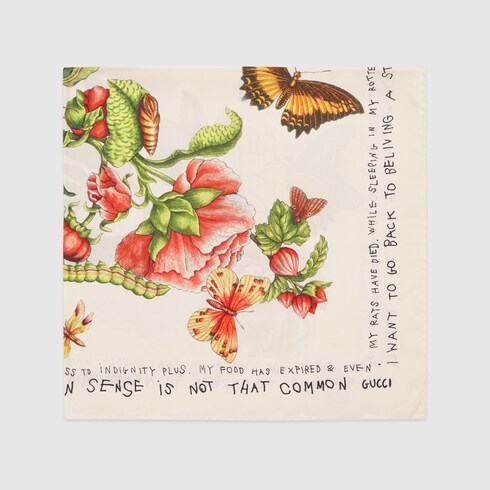 SS TO INDIGNITY PLUS. MY FOOD HAS EXPIRED & EVEN .
N SENSE IS NOT THAT COMMON GUCCI
MY RATS HAVE DIED. WHILE SLEEPING IN MY ROTTE
I WANT TO GO BACK TO BELIVING A ST